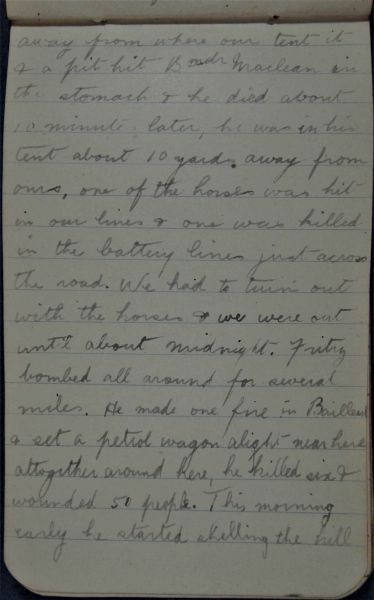 away from where our tent it
& a pit hit Bmdr Maclean in
the stomach & he died about
10 minute later, he was in his
tent about 10 yards away from
ours, one of the horses was hit
in our lines & one was killed
in the battery lines just across
the road. We had to turn out
with the horses & we were out
until about midnight. Fritz
bombed all around for several
miles. He made one fire in Bailleul
& set a petrol wagon alight near here
altogether around here, he killed six &
wounded 50 people. This morning
early he started shelling the hill